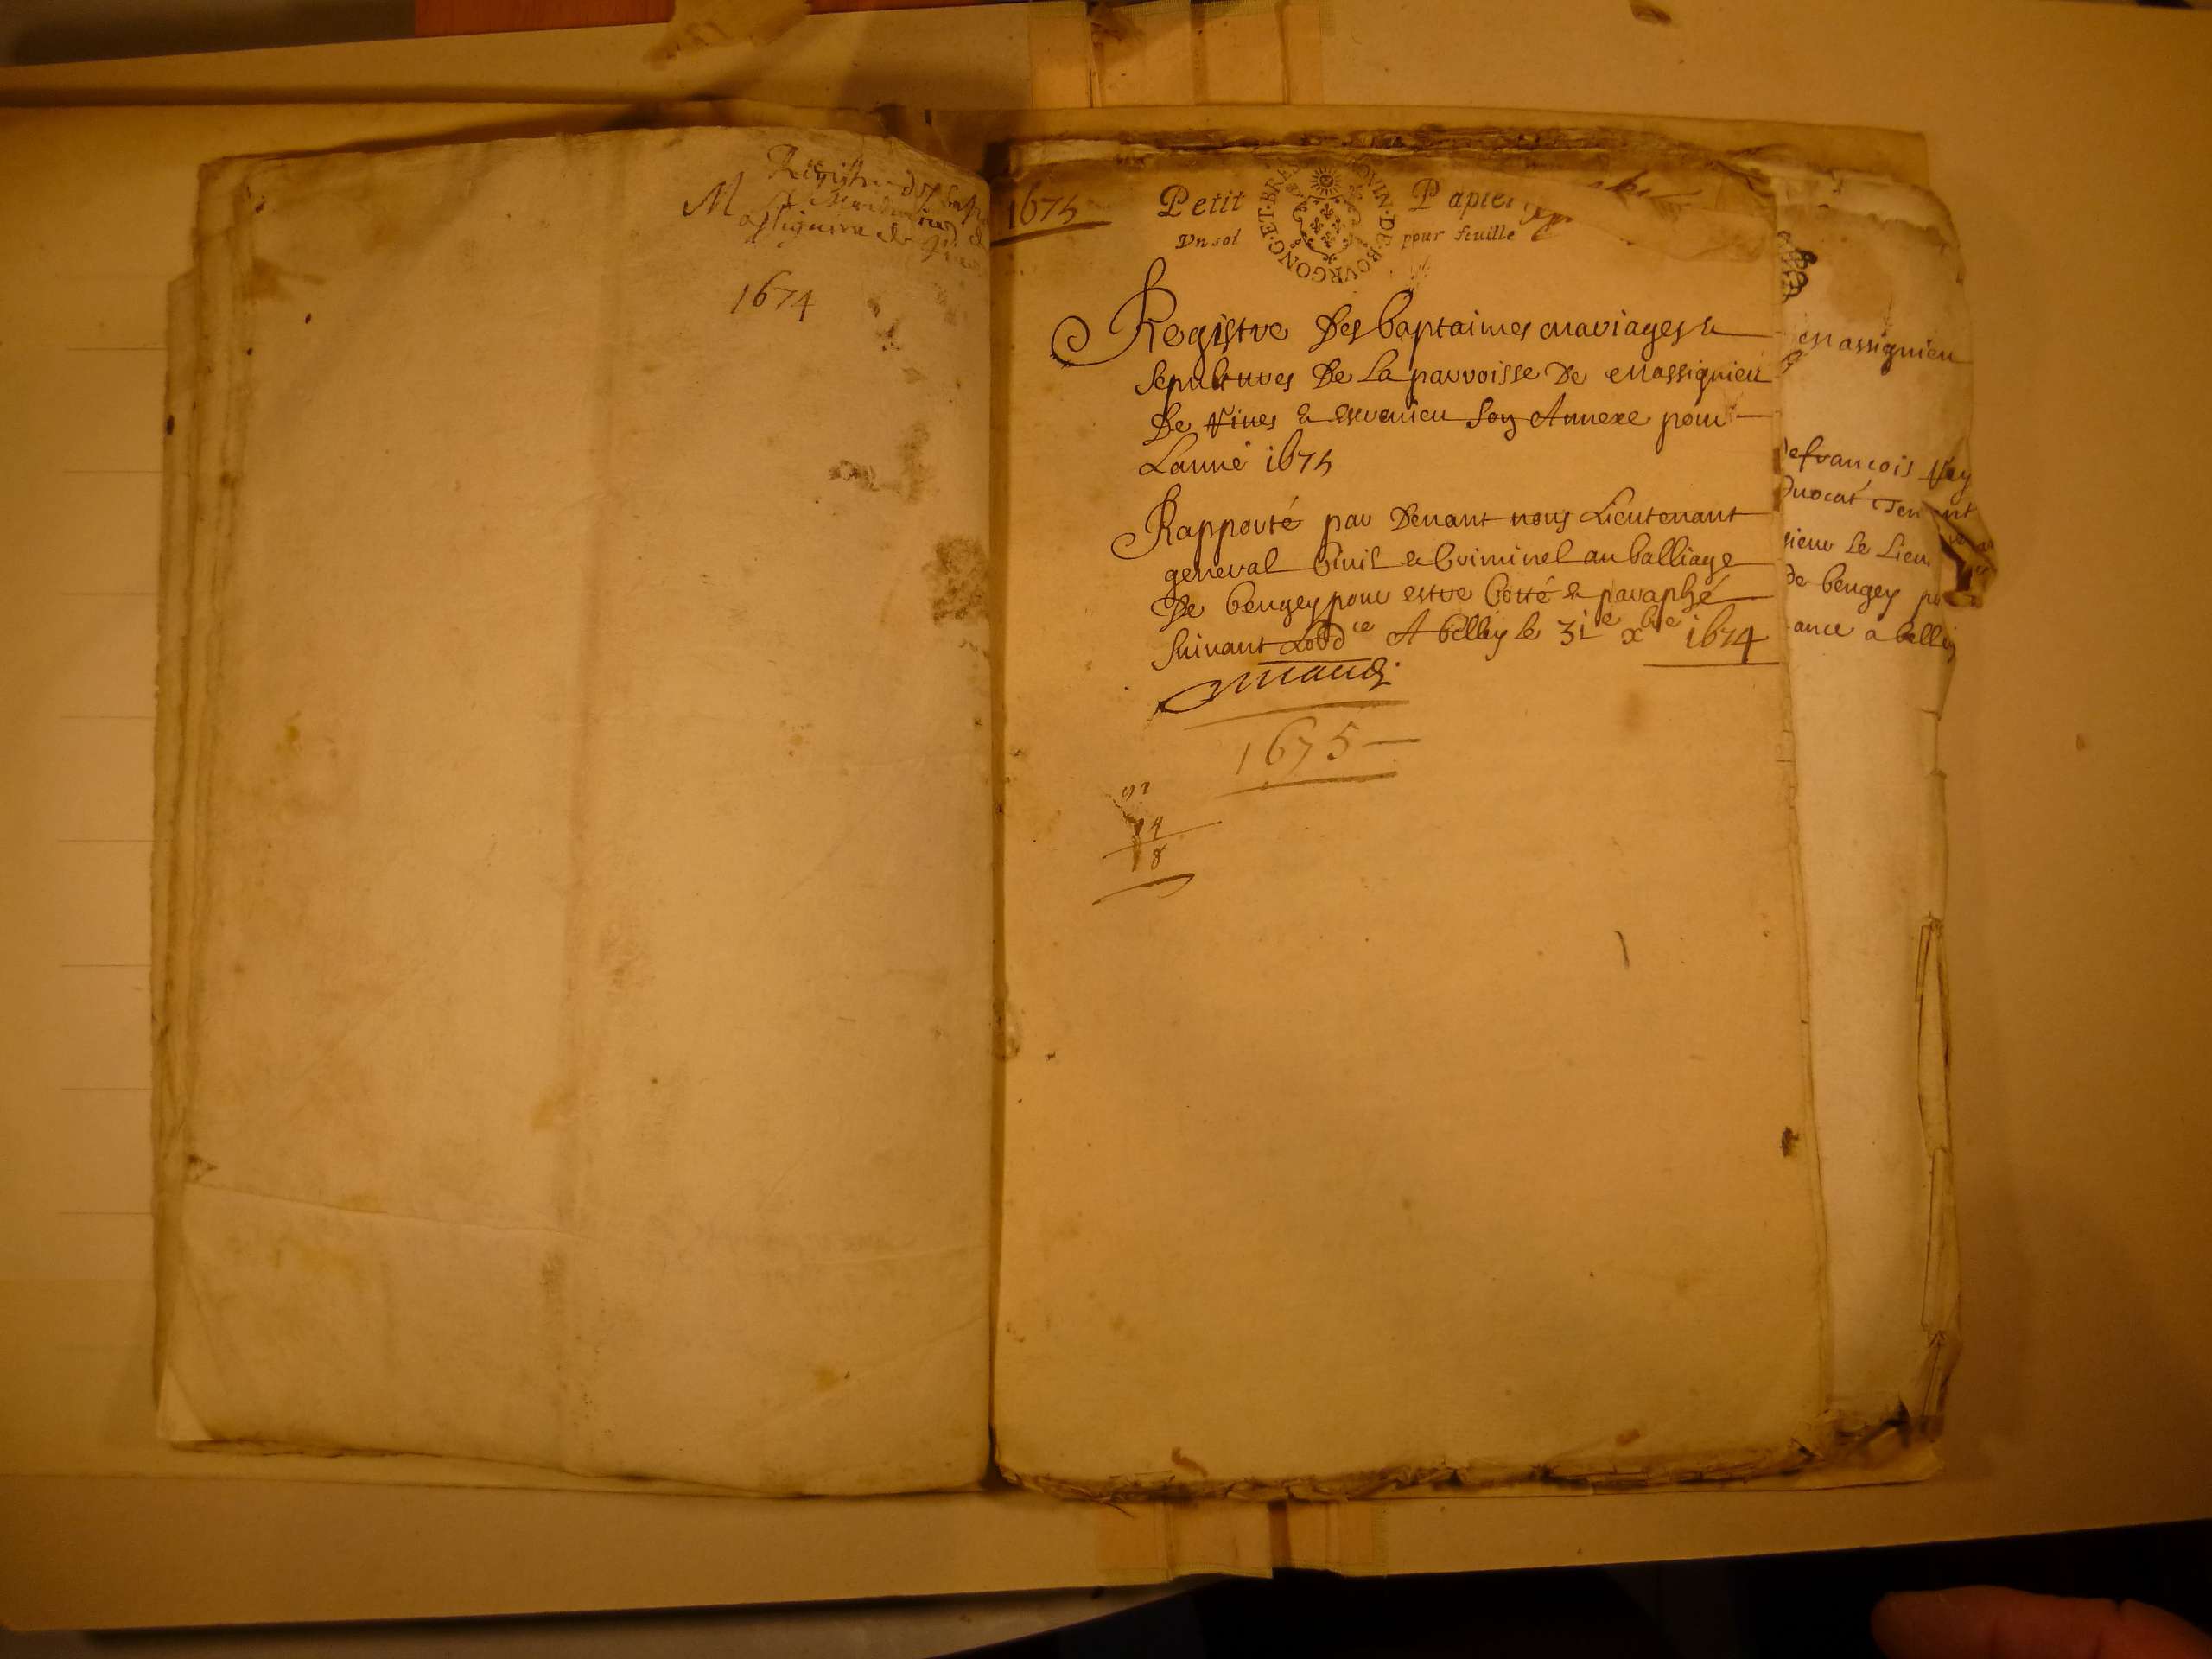 Registre des bap
M
1674
1675
Petit Papier
Vn sol pour feuille
GONG·ET·BRE OVIN·DE·BOVR
Registre Des baptaimes mariages &
Sepultures De La parroisse De Massignieu
De Rives & son Annexe pour
Lanné 1675
Rapporté par Devant nous Lieutenant
general Civil & Criminel au balliage
De beugey pour estre Cotté & paraphé
Suivant Lordce A belley le 31e xbre 1674
1675
4
8
Massignieu
françois
Avocat Tenant
sieur le Lieu
de beugey po
ance a belley